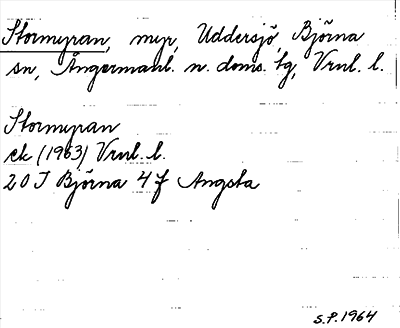 Stormyran, myr, Uddersjö Björna
sn, Ångermanl. n. doms. tg, Vrnl. l.
Stormyran
ek (1963) Vrnl. l.
20 J Björna 4 f Angsta
S.P. 1964